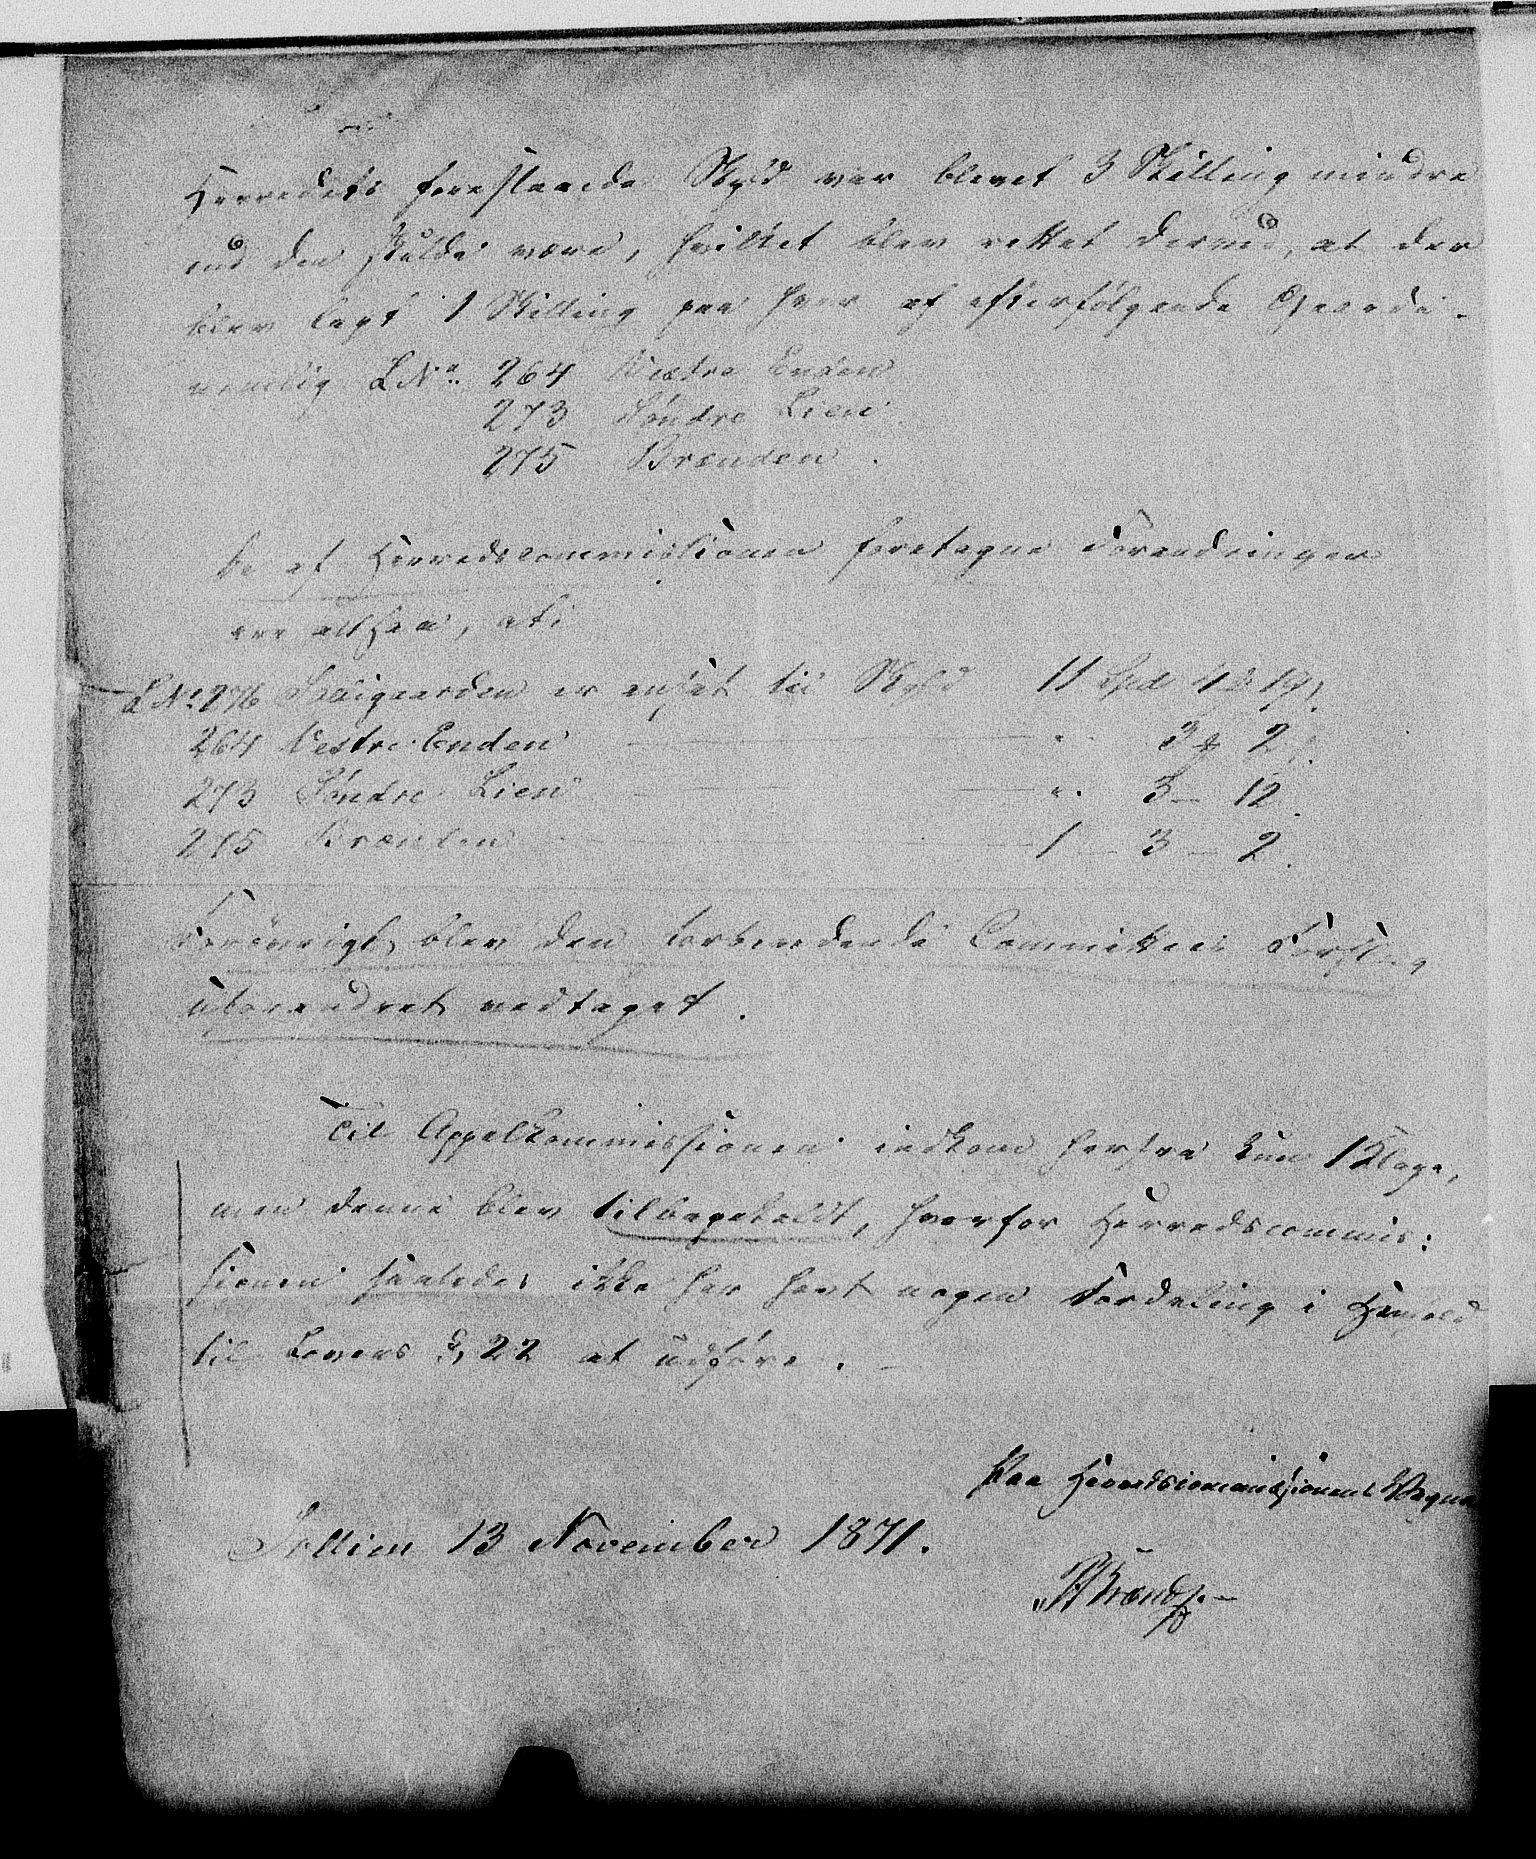 Herredets foreslaaede Skyld var blevet 3 Skilling mindre
end den skulde være, hvilket blev rettet derved, at der
blev lagt 1 Skilling paa hver af efterfølgende Gaarde.
nemlig LNº. 264 Vestre Enden
273 Søndre Lien
275 Brænden.
De af Herredscommissionen foretagne Forandringer
ere altsaa, at:
LNº 276 er ansat til Skyld 11 Spd 1 19
264 Vestre Enden " 3 2
273 Søndre Lien " 3 - 12
275 Brænden 1 - 3 - 2.
Forøvrigt blev den forberedende Committees Forslag
uforandret vedtaget.
Til Appelkommissionen indkom herfra kun 1 Klage,
men denne blev tilbageholdt, hvorfor Herredscommis:
sionen saaledes ikke har havt nogen Fordeling i Henhold
til Lovens §, 22 at udføre. -
Paa Herredscommissionens Vegne
Sollien 13 November 1871.